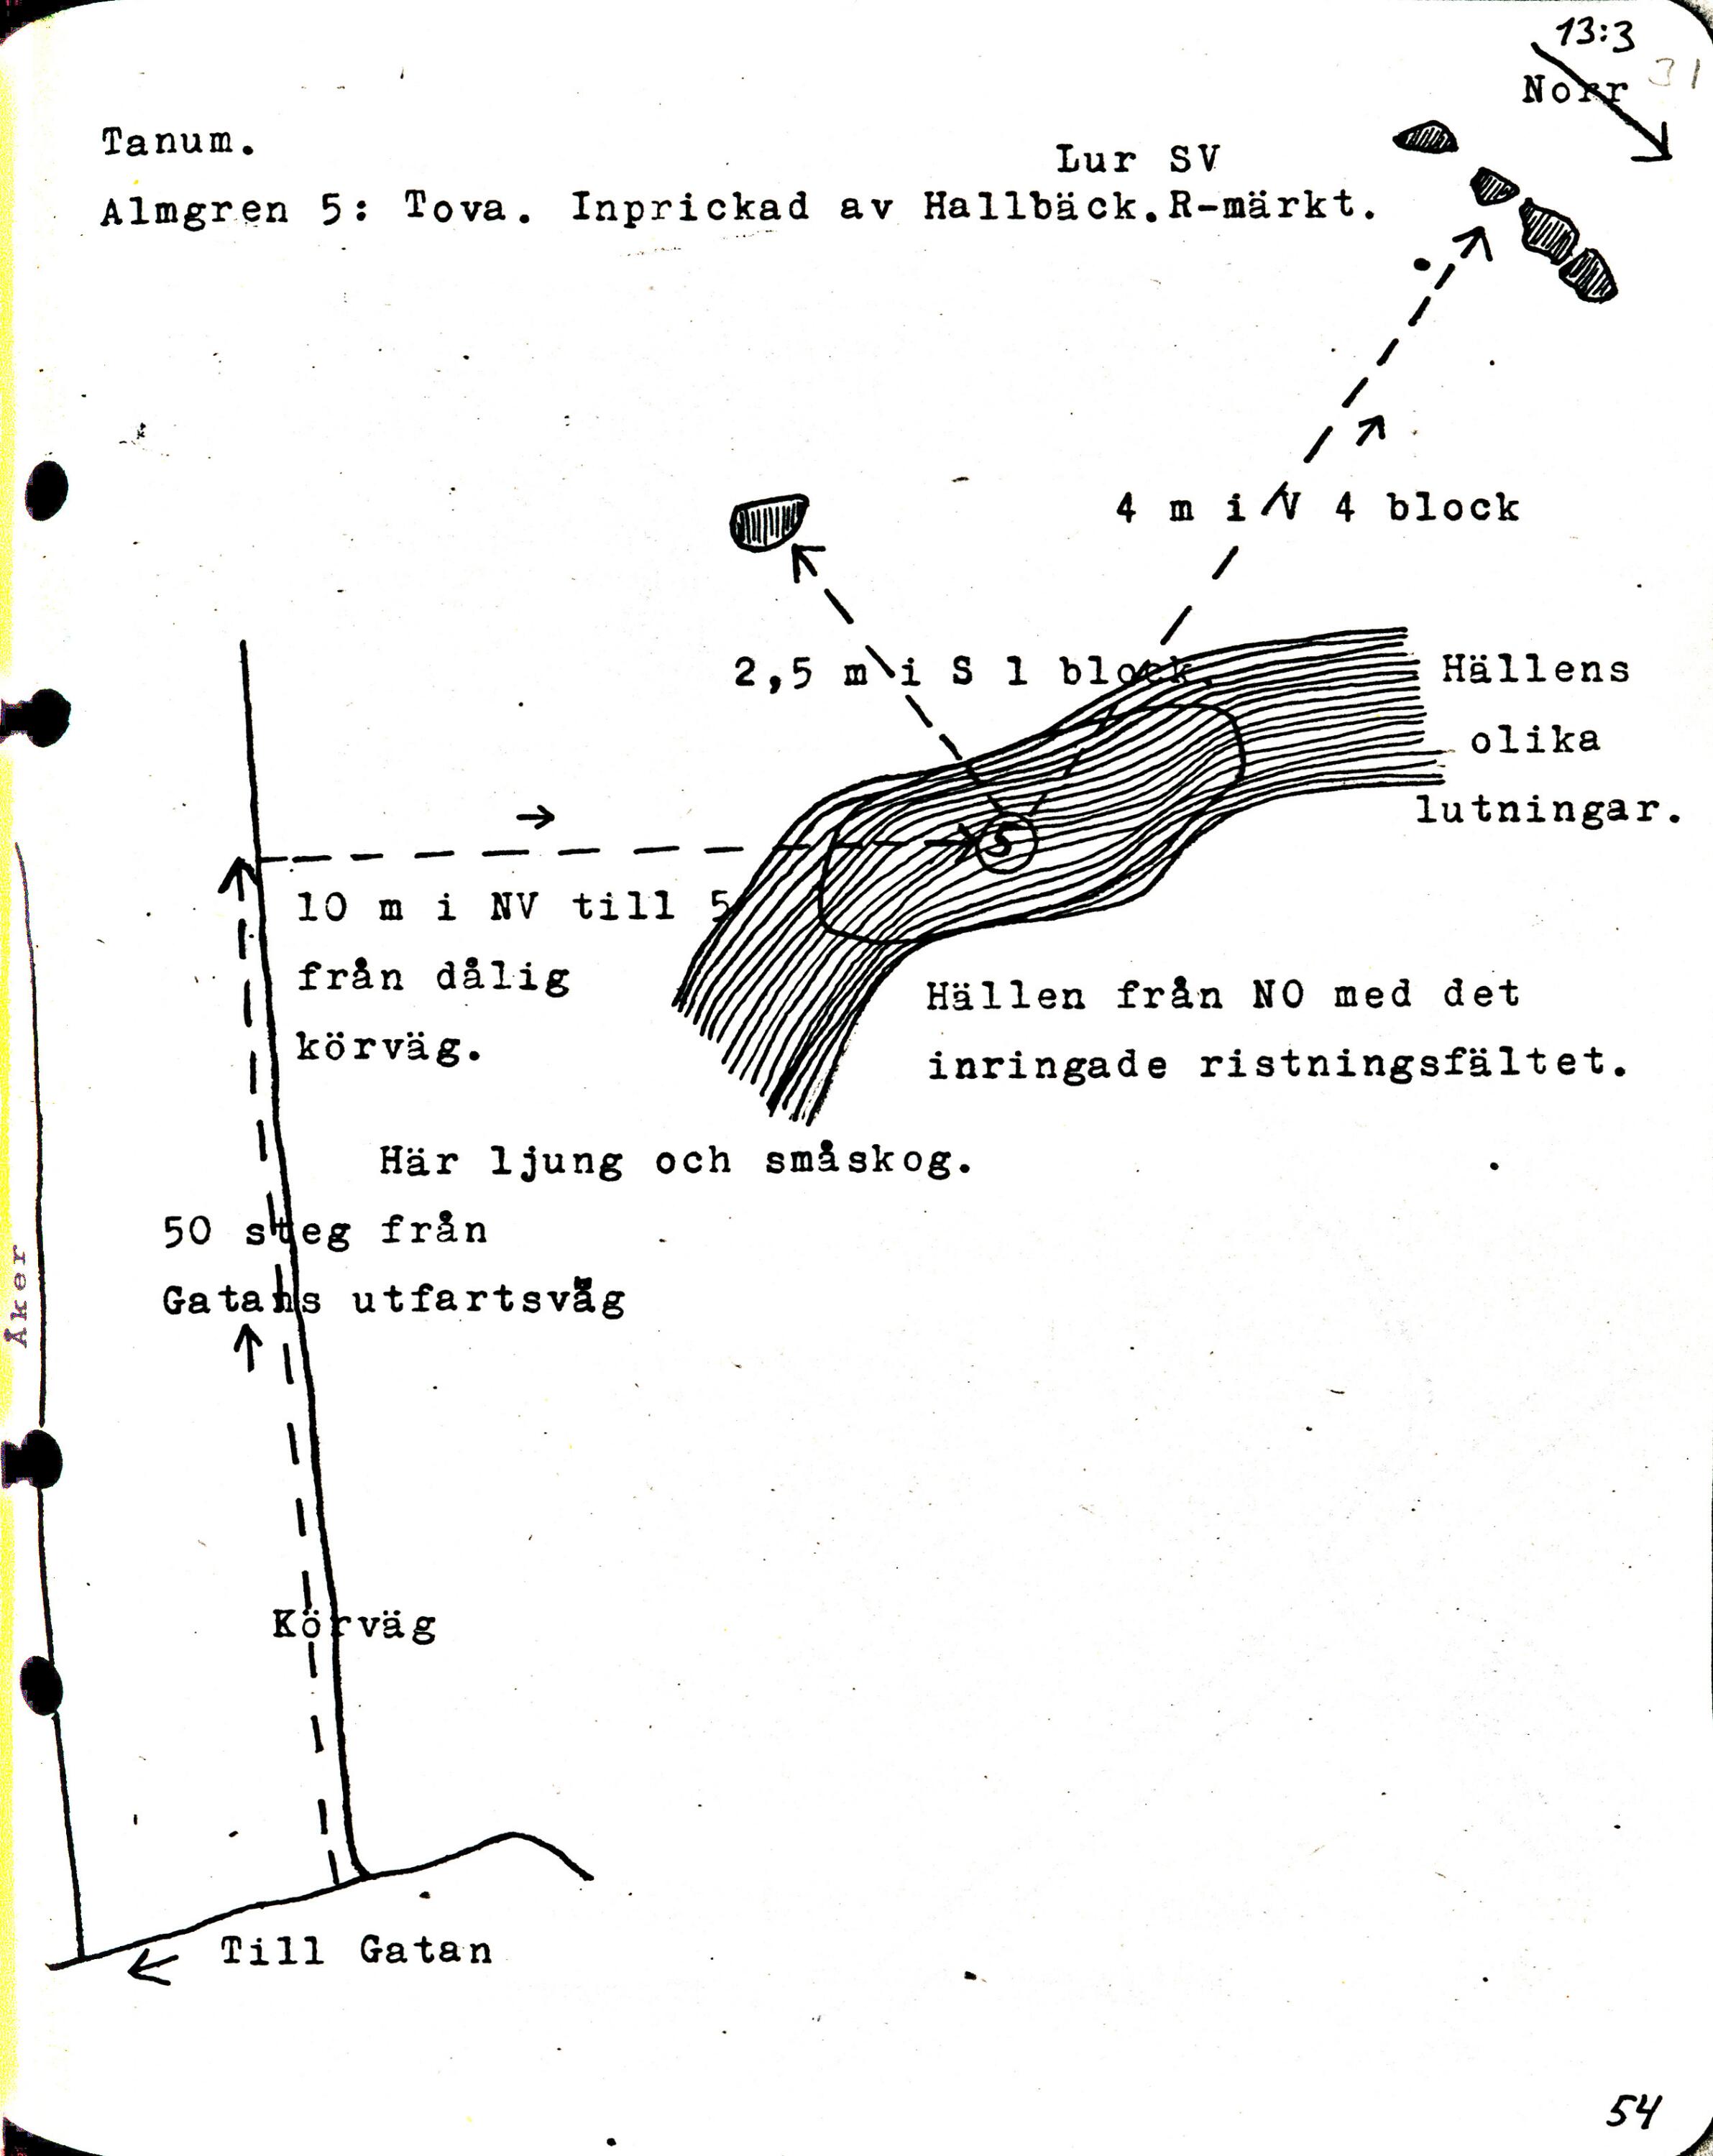 13:3
Norr
31
Tanum.
Lur SV
Almgren 5: Tova. Inprickad av Hallbäck.R-märkt.
4 m i V 4 block
2,5 m i S 1 block.
Hällens
olika
lutningar.
5
10 m i NV till 5
från dålig
körväg.
Hällen från NO med det
inringade ristningsfältet.
Här ljung och småskog.
50 steg från
Gatans utfartsväg
Åker
Körväg
Till Gatan
54